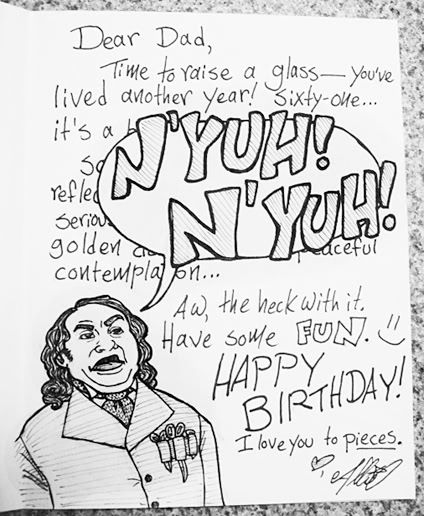 Dear Dad,
Time to raise a glass—you've
lived another year! Sixty-one...
it's a
N'YUH!
N'YUH!
reflec
serious
golden peaceful
contemplation...
Aw, the heck with it.
Have some FUN. :)
HAPPY
BIRTHDAY!
I love you to pieces.